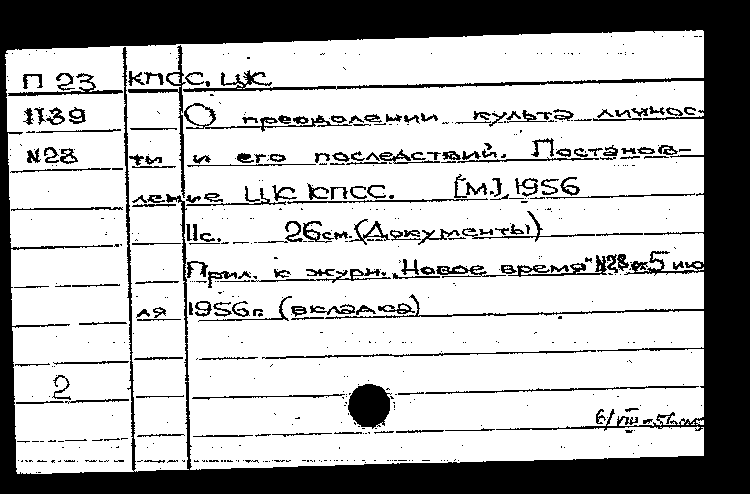 П 23 КПСС. ЦК
П39 О преодолении культа личнос-
N28 ти и его последствий. Постанов-
ление ЦК КПСС. [М.], 1956
11с. 26см. (Документы)
Прил. к журн. „Новое время" N28 от 5 ию
ля 1956г. (вкладка)
2
6/VIII-56